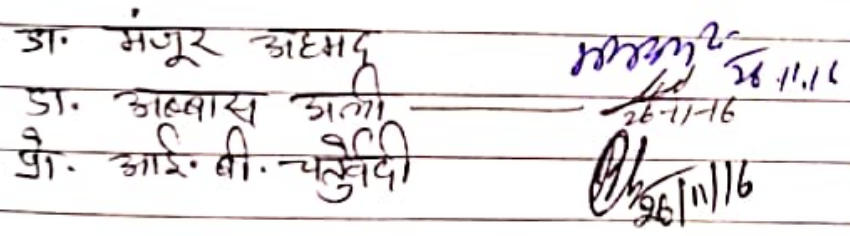 डा. मंजूर अहमद 26.11.16
डा. अब्बास अली — 26-11-16
प्रो. आई. बी. चतुर्वेदी 26/11/16